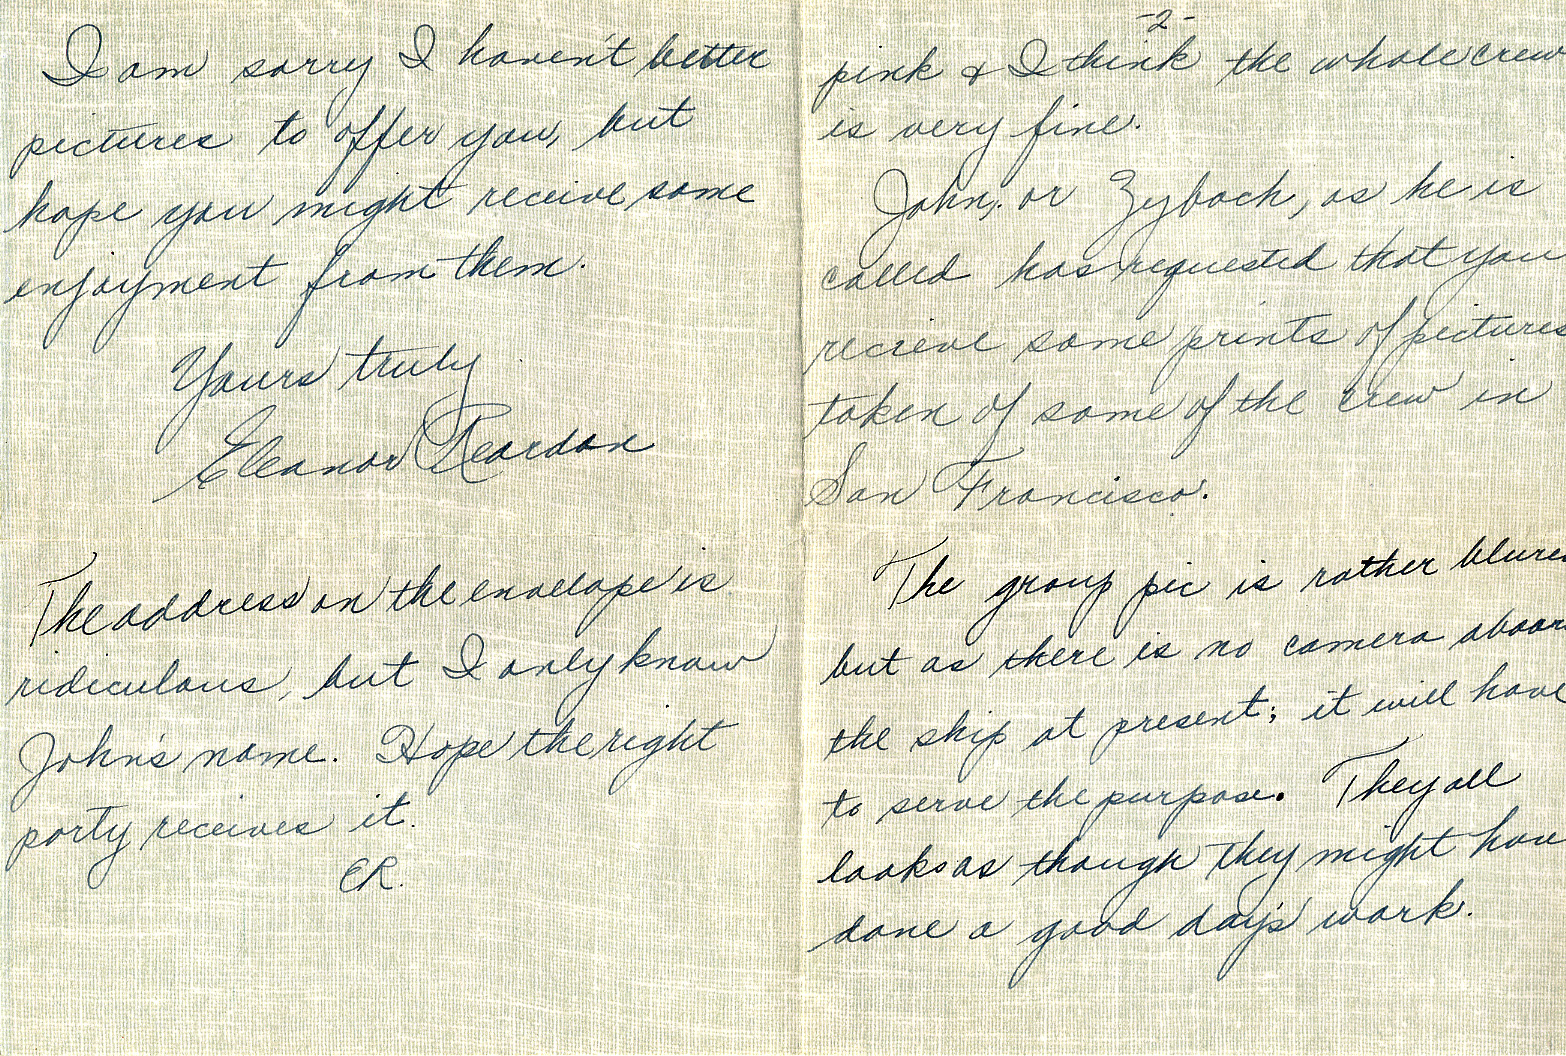 I am sorry I haven't better
pictures to offer you, but
hope you might receive some
enjoyment from them.
Yours truly
Eleanor Reardon
The address on the envelope is
ridiculous, but I only know
John's name. Hope the right
party receives it.
ER.
-2-
pink & I think the whole crew
is very fine.
John, or Zybach, as he is
called has requested that you
recieve some prints of pictures
taken of some of the crew in
San Francisco.
The group pic is rather blure
but as there is no camera aboar
the ship at present; it will have
to serve the purpose. They all
looks as though they might hav
done a good day's work.